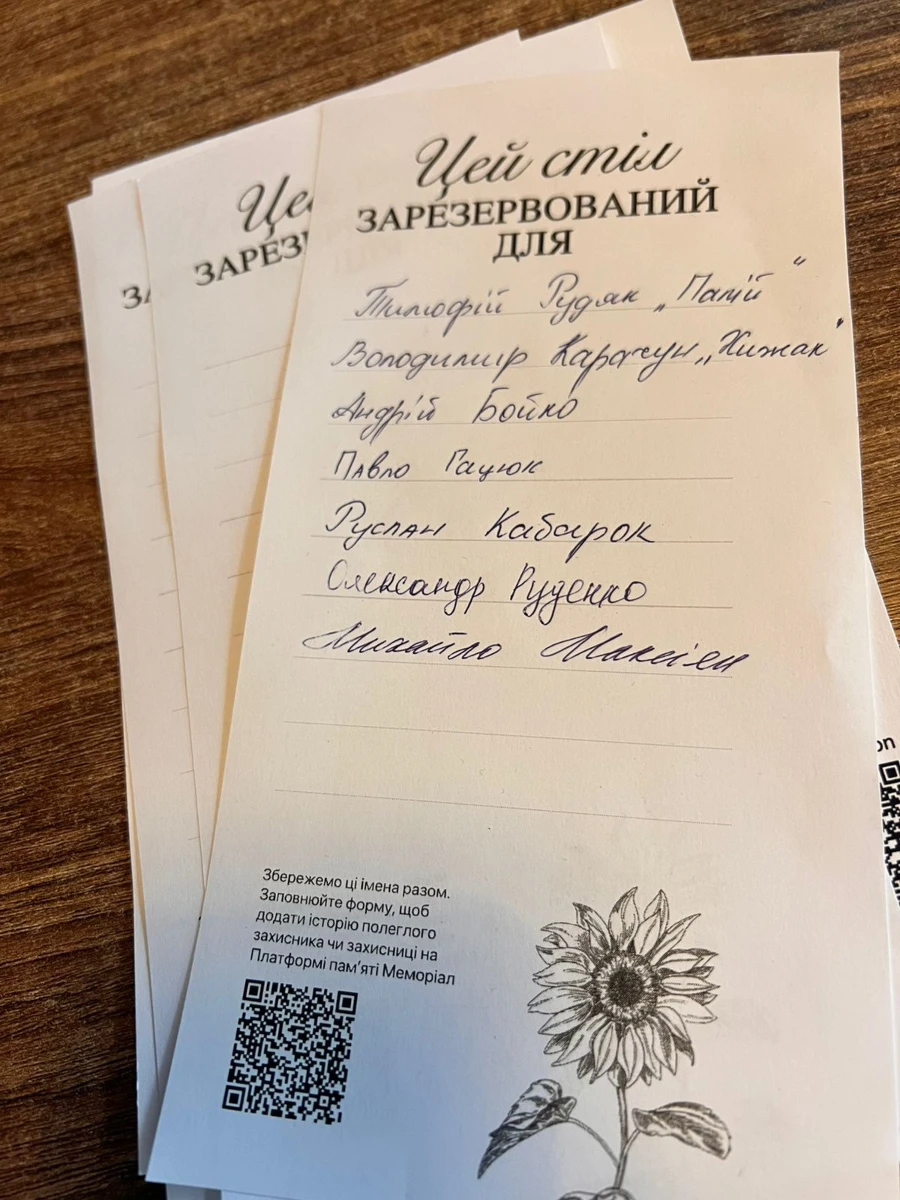 Цей стіл
ЗАРЕЗЕРВОВАНИЙ
ДЛЯ
Тимофій Рудяк „Палій"
Володимир Карачун „Хижак"
Андрій Бойко
Павло Гацюк
Руслан Кабарок
Олександр Руденко
Михайло
Збережемо ці імена разом.
Заповнюйте форму, щоб
додати історію полеглого
захисника чи захисниці на
Платформі пам'яті Меморіал
Це
ЗАРЕЗ
ЗА
on